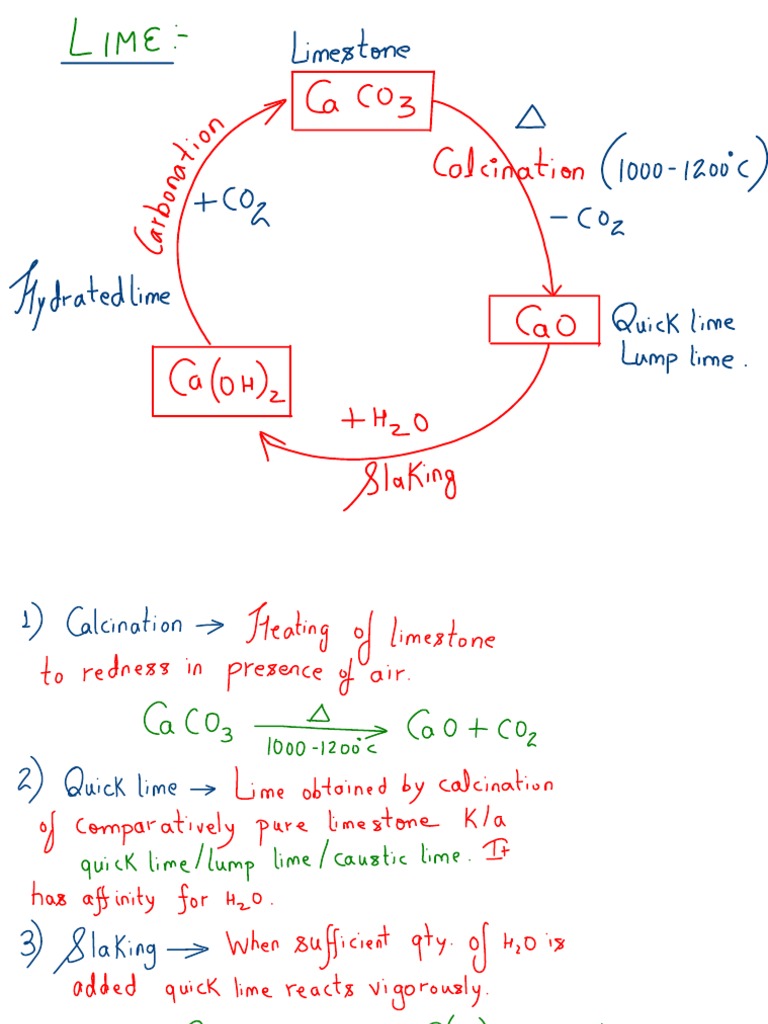 LIME:-
Limestone
CaCO3
Δ
Calcination (1000-1200°C)
-CO2
Carbonation
+CO2
Hydrated lime
CaO
Quick lime
Lump lime.
Ca(OH)2
+H2O
Slaking
1) Calcination → Heating of limestone
to redness in presence of air.
CaCO3 Δ 1000-1200°C → CaO + CO2
2) Quick lime → Lime obtained by calcination
of comparatively pure limestone K/a
quick lime/lump lime/caustic lime. It
has affinity for H2O.
3) Slaking → When sufficient qty. of H2O is
added quick lime reacts vigorously.